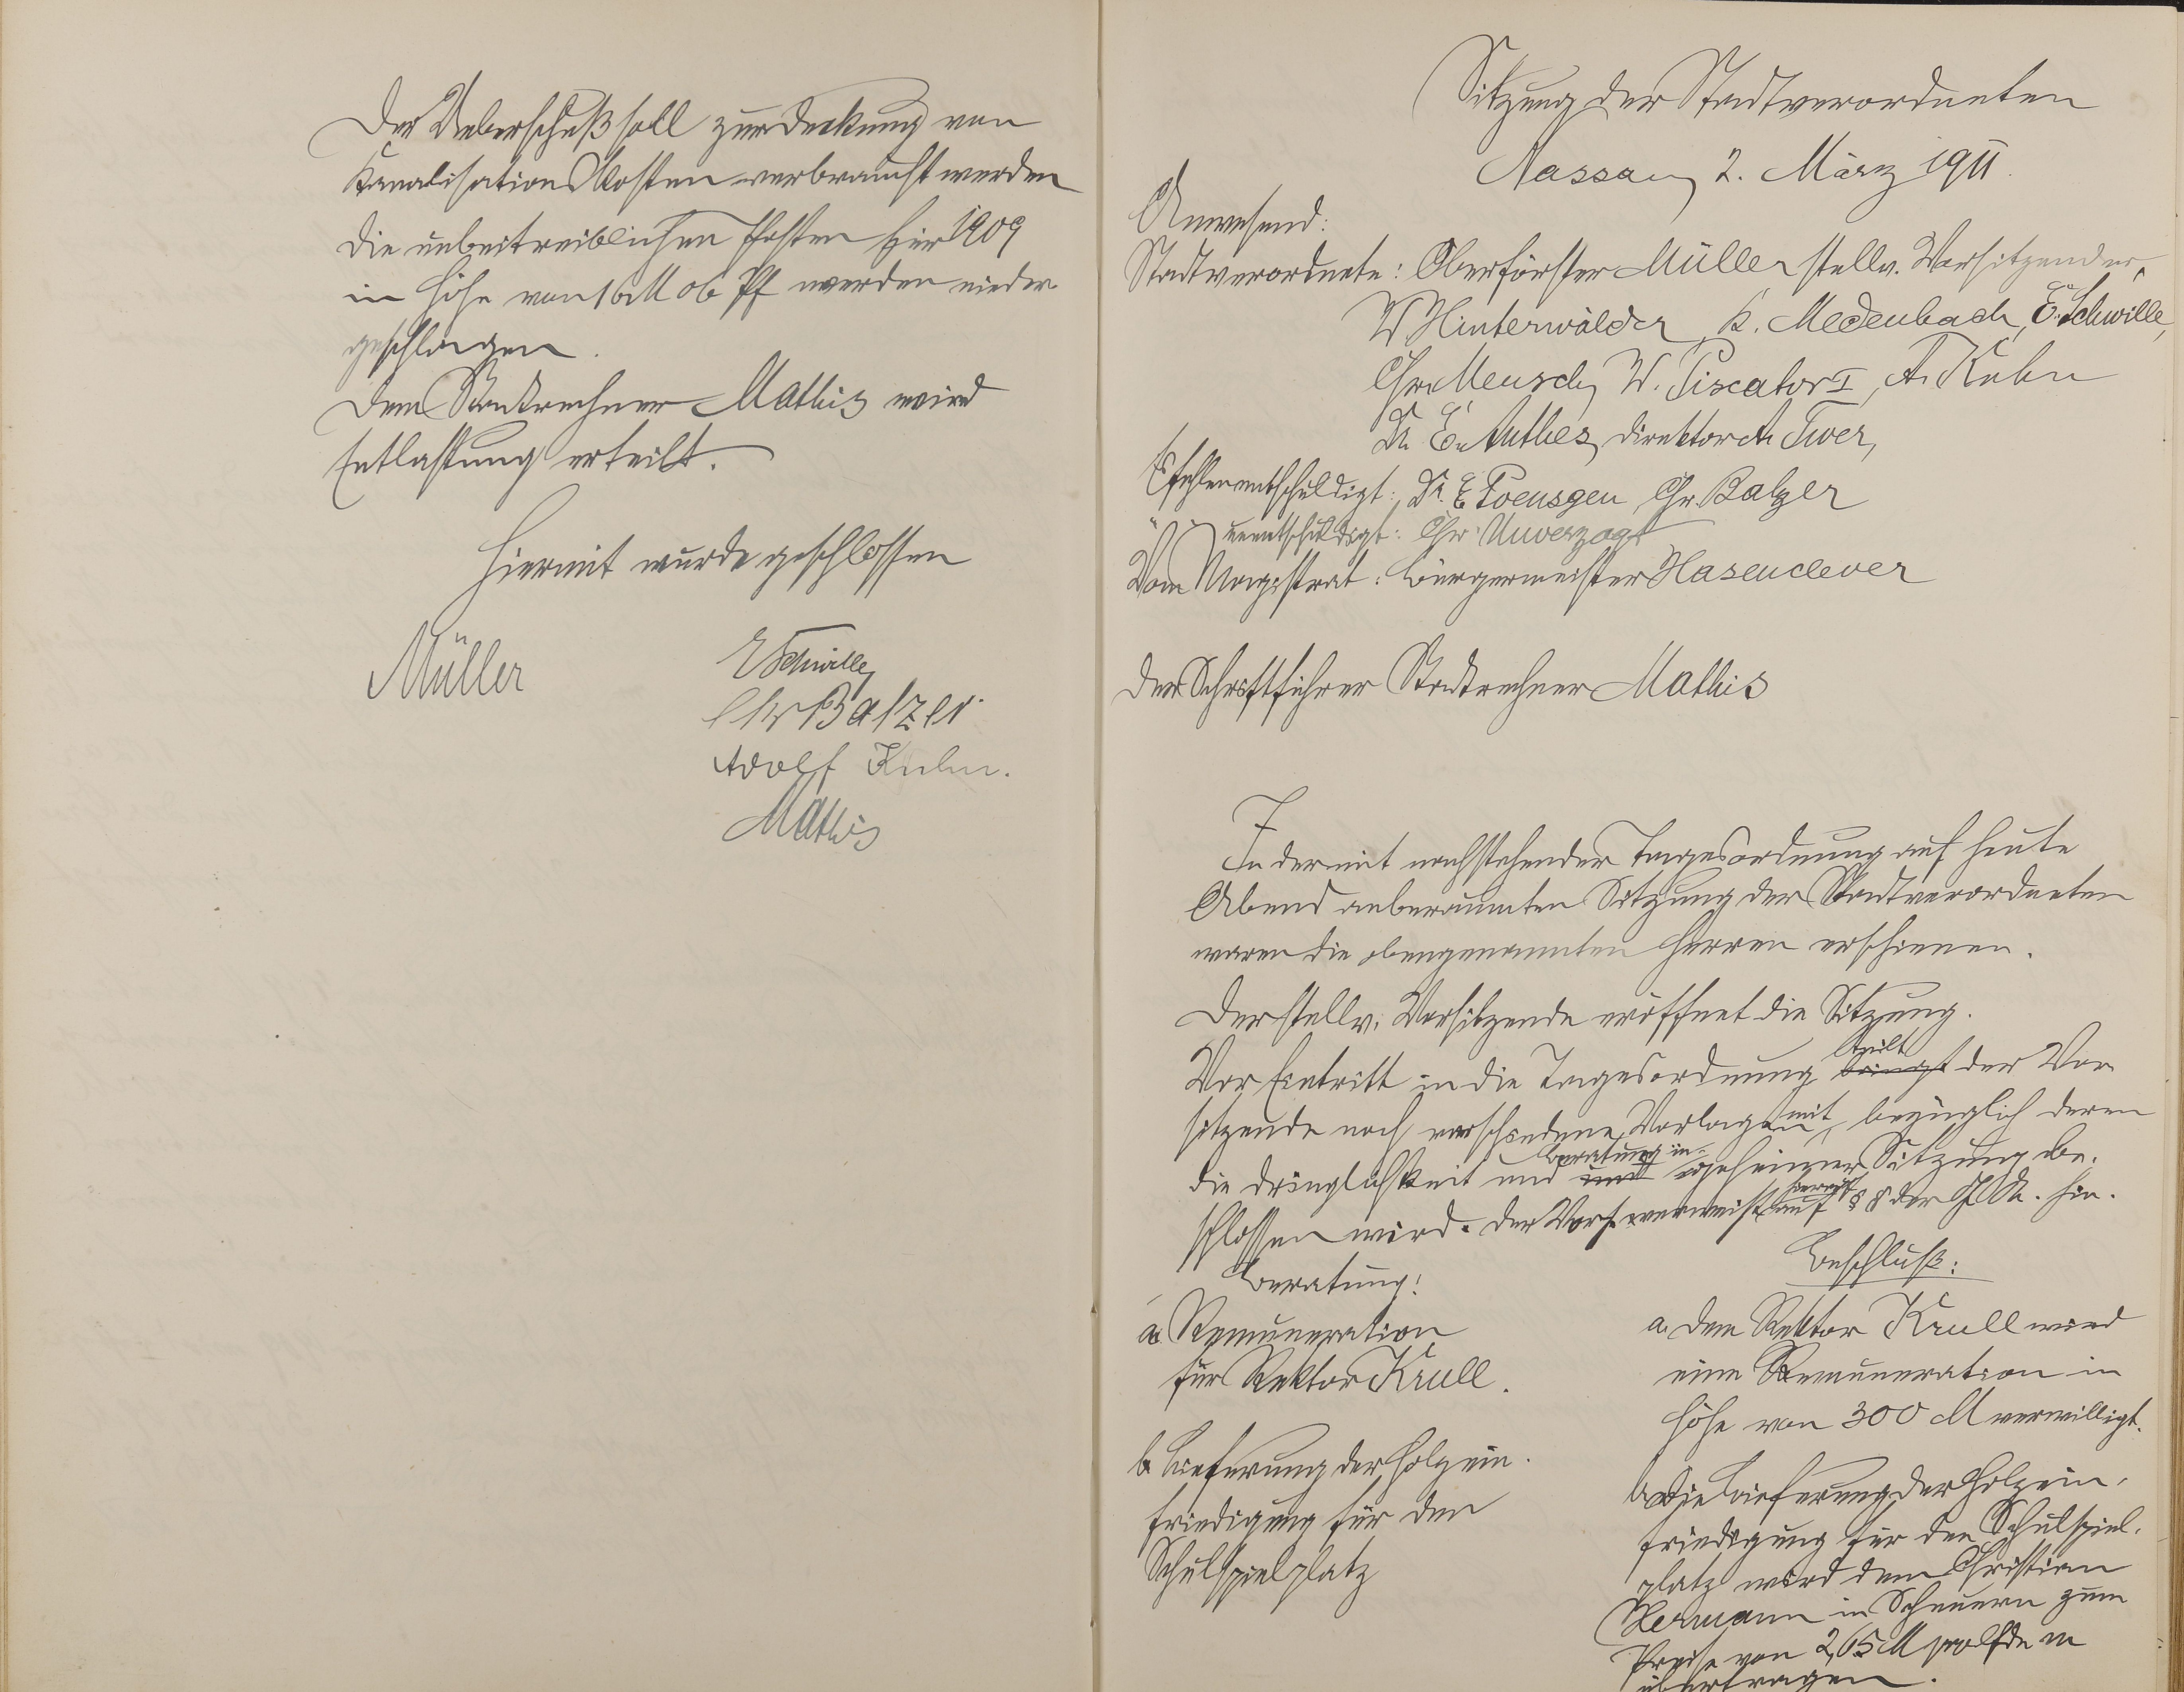 Der Ueberschuß soll zur Deckung von
Kanalisationskosten verbraucht werden
Die unbeitreiblichen Posten für 1909
in Höhe von 16 M 06 Pf werden nieder
geschlagen.
Dem Stadtrechner Mathis wird
Entlastung erteilt.
Hiermit wurde geschlossen
Müller
E Schwille
Chr Balzer
Adolf Kuhn.
Mathis
Sitzung der Stadtverordneten
Nassau, 2. März 1911.
Anwesend:
Stadtverordnete: Oberförster Müller stellv. Vorsitzender,
W Hinterwälder, K. Medenbach, E. Schwille,
Chr. Meusch, W. Piscator I, A. Kuhn
Dr. E. Anthes, Direktor A. Twer,
Es fehlen entschuldigt: Dr. E Poensgen, Chr. Balzer
" " unentschuldigt: Chr. Unverzagt
Vom Magistrat: Bürgermeister Hasenclever
Der Schriftführer Stadtrechner Mathis
In der mit nachstehender Tagesordnung auf heute
Abend anberaumten Sitzung der Stadtverordneten
waren die obengenannten Herren erschienen.
Der stellv. Vorsitzende eröffnet die Sitzung.
Vor Eintritt in die Tagesordnung bringt teilt der Vor
sitzende noch verschiedene Vorlagen mit, bezüglich deren
die Dringlichkeit und und Beratung in geheimer Sitzung be-
schlossen wird. Der Vors. verweist hierauf auf § 8 der G.O. hin.
Beratung:
Beschluß:
a. Remuneration
für Rektor Krull.
a. Dem Rektor Krull wird
eine Remuneration in
Höhe von 300 M verwilligt.
b. Lieferung der Holzein-
friedigung für den
Schulspielplatz
b. Die Lieferung der Holzein-
friedigung für den Schulspiel-
platz wird dem Christian
Hermann in Scheuern zum
Preise von 2,65 M pro lfde m
übertragen.